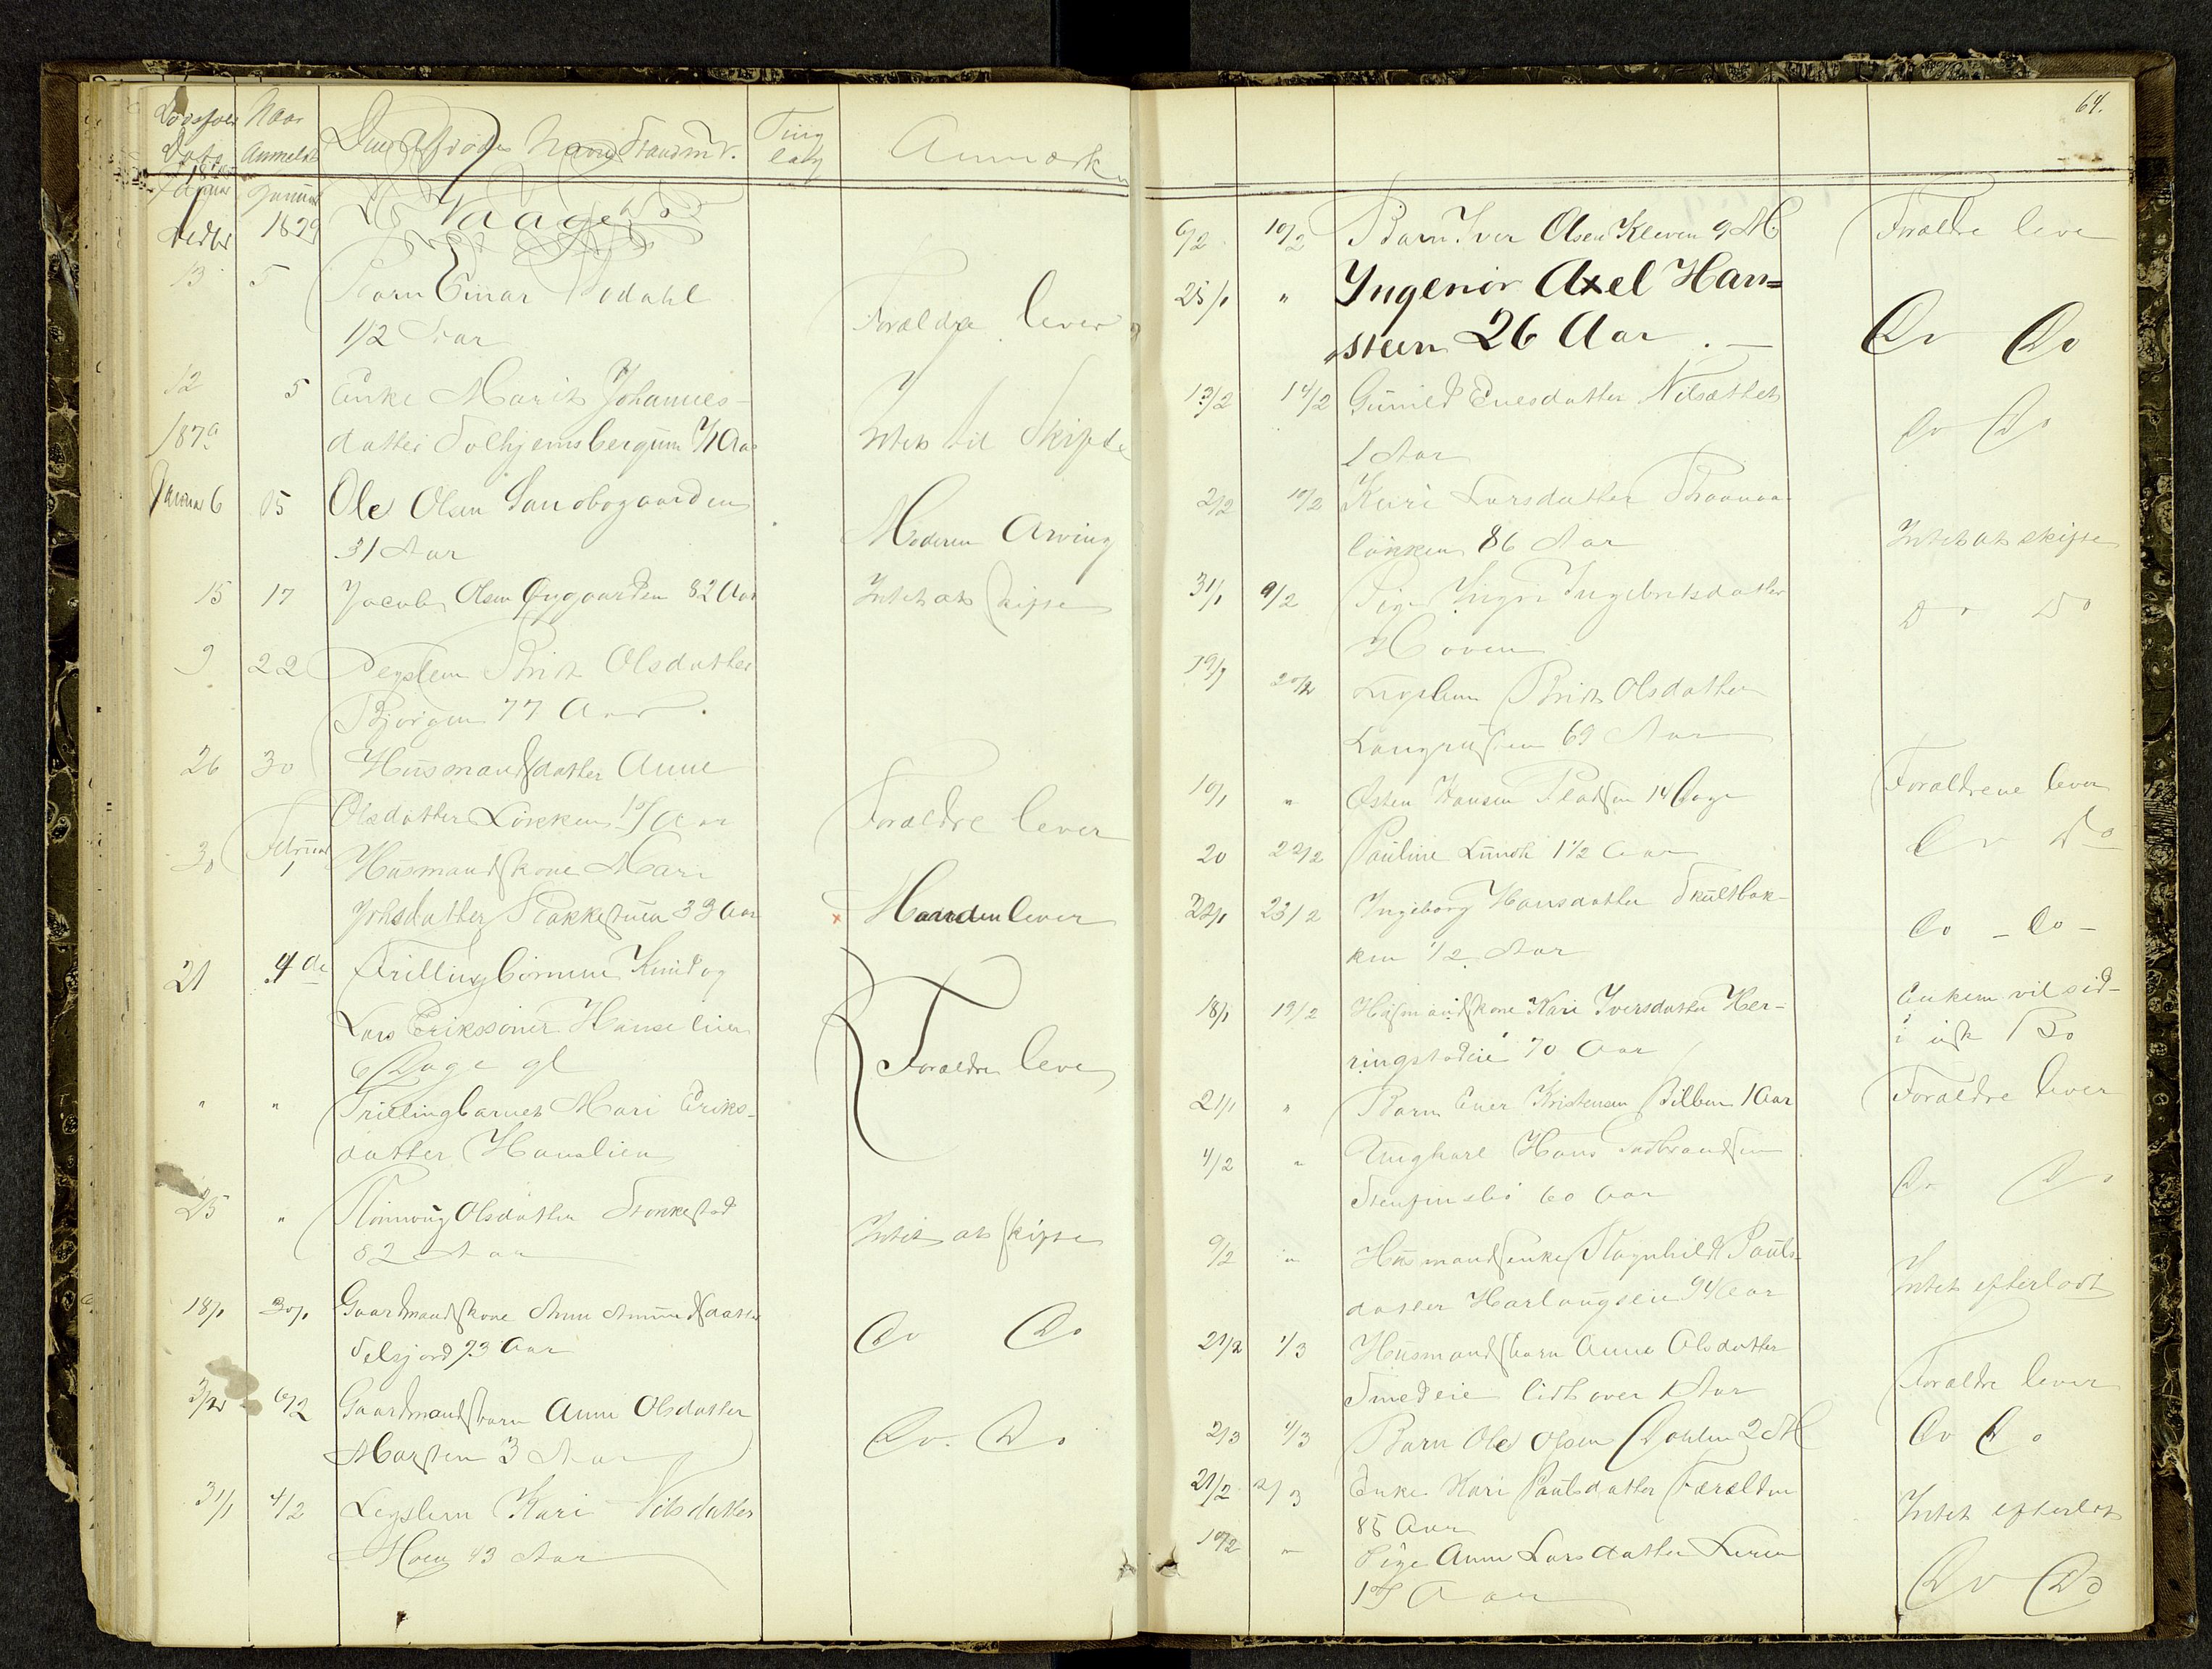 Dødsfaldets Naar Den Afdødes Navn Stand m.v. Ting Anmærkn
Dato Anmeldt lag
1878 Januar
Decbr 1879 Vaage
13 5 Barn Einar Modahl
1/2 Aar Forældre lever
12 5 Enke Marit Johannes-
1879 datter Solhjemsbergum 71 Aar Intet til Skifte
Januar 6 15 Ole Olsen Sandbogaarden
31 Aar Moderen Arving
15 17 Jacob Olsen Øygaarden 82 Aar Intet at skifte
9 22 Lægslem Brit Olsdatter
Bjørgen 77 Aar.
26 30 Husmandsdatter Anne
Olsdatter Løkken Aar Forældre lever
30 Februar 1 Husmandskone Mari
Johsdatter Bakkestuen 33 Aar Manden lever
21 4de Trillingbørnene Knud og
Lars Erikssønner Hanselien
6 Dage gl Forældre lever
" " Trillingbarnet Mari Eriks-
datter Hanslien
25 " Rønnoug Olsdatter Stokkestad
82 Aar Intet at skifte
18/1 30/1 Gaardmandskone Anne Amundsdatter
Selsjord 73 Aar Do Do
3/2 6/2 Gaardmandsbarn Anne Olsdatter
Marstein 3 Aar Do. Do
31/1 4/2 Legslem Kari Nilsdatter
Hoen 43 Aar
64.
6/2 10/2 Barn Iver Olsen Kleven 9 M. Forældre leve
25/1 " Ingeniør Axel Han=
steen 26 Aar. — Do Do
13/2 14/2 Gunild Enesdatter Nilsættet
1 Aar Do Do
2/2 10/2 Kari Larsdatter Braanaa-
løkken 86 Aar Intet at skifte
31/1 9/2 Pige Yngri Ingebretsdatter
Hoven Do Do
19/1 20/2 Legslem Brit Olsdatter
Langrusten 69 Aar
10/1 " Østen Hansen Pladsen 14 Dage Forældrene lever
20 22/2 Pauline Lunde 1 1/2 Aar Do Do
22/1 23/2 Ingeborg Hansdatter Skultbak-
ken 1/2 Aar Do - Do -
18/1 19/2 Husmandskone Kari Iversdatter Her- Enkem. vil sid-
ringstadeie 70 Aar i usk Bo
21/1 " Barn Ener Kristensen Silben 1 Aar Forældre lever
4/2 " Ungkarl Hans Gudbrandsen
Stenfinsbø 60 Aar Do Do
9/2 " Husmandsenke Ragnhild Pauls-
datter Harlaugseie 94 Aar Intet efterladt
21/2 1/3 Husmandsbarn Anne Olsdatter
Smedeie lidt over 1 Aar Forældre lever
2/3 4/3 Barn Ole Olsen Dahlen 2 M Do Do
21/2 2/3 Enke Kari Paulsdatter
85 Aar Intet efterladt
10/2 " Pige Anne Larsdatter
Aar Do Do